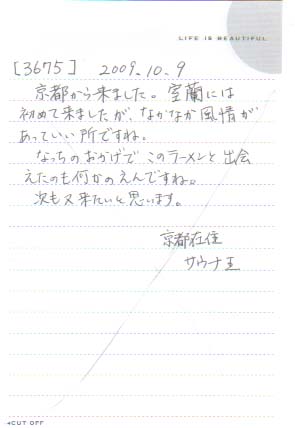 LIFE IS BEAUTIFUL
[3675] 2009.10.9
京都から来ました。室蘭には
初めて来ましたが、なかなか風情が
あっていい所ですね。
なっちのおかげでこのラーメンと出会
えたのも何かのえんですね。
次も又来たいと思います。
京都在住
サウナ王
CUT OFF